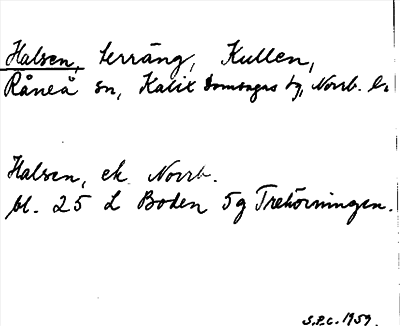 Halsen, terräng, Kullen,
Råneå sn, Kalix Domsagas tg, Norrb. l.
Halsen, ek. Norrb.
bl. 25 L Boden 5g Trehörningen.
S.P.C. 1959.